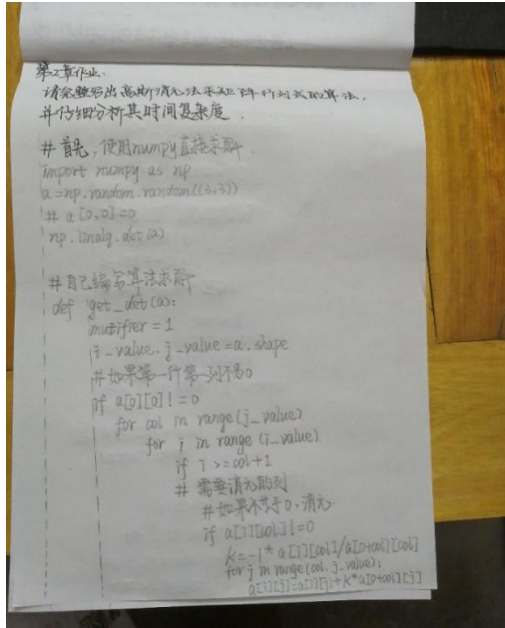 第2章作业.
请完整写出高斯消元法求矩阵行列式的算法,
并仔细分析其时间复杂度.
#首先,使用numpy直接求解
import numpy as np
a=np.random.random((3,3))
# a[0,0]=0
np.linalg.det(a)
#自己编写算法求解
def get_det(a):
= 1
i_value, j_value=a.shape
#如果第一行第一列不为0
if a[0][0]!=0
for col in range(j_value)
for i in range(i_value)
if i>=col+1
# 需要消元的列
#如果不等于0,消元
if a[i][col]!=0
K=-1* a[i][col]/a[0+col][col]
for j in range(col,j_value):
a[i][j]=a[i][j]+K*a[0+col][j]